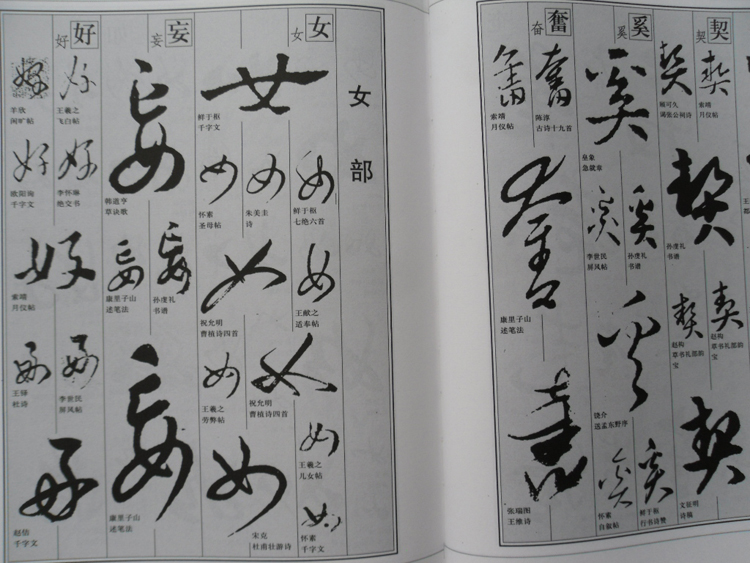 契
契
索靖
月仪帖
契
契
孙虔礼
书谱
契
赵构
草书礼部韵
宝
契
契
文征明
诗稿
奚
奚
皇象
急就章
奚
李世民
屏风帖
奚
孙虔礼
书谱
奚
饶介
送孟东野序
奚
怀素
自叙帖
奚
鲜于枢
行书诗赞
奚
奮
奋
索靖
月仪帖
奮
陈淳
古诗十九首
奮
康里子山
述笔法
奮
张瑞图
王维诗
奮
女部
女
女
鲜于枢
千字文
女
鲜于枢
七绝六首
女
朱美圭
诗
女
怀素
圣母帖
女
王献之
适奉帖
女
祝允明
曹植诗四首
女
祝允明
曹植诗四首
女
王羲之
劳弊帖
女
王羲之
儿女帖
女
怀素
千字文
女
宋克
杜甫壮游诗
女
妄
妄
韩道亨
草诀歌
妄
孙虔礼
书谱
妄
康里子山
述笔法
妄
康里子山
述笔法
妄
好
好
王羲之
飞白帖
好
羊欣
闲旷帖
好
李怀琳
绝交书
好
欧阳询
千字文
好
索靖
月仪帖
好
李世民
屏风帖
好
杜诗
好
赵佶
千字文
好